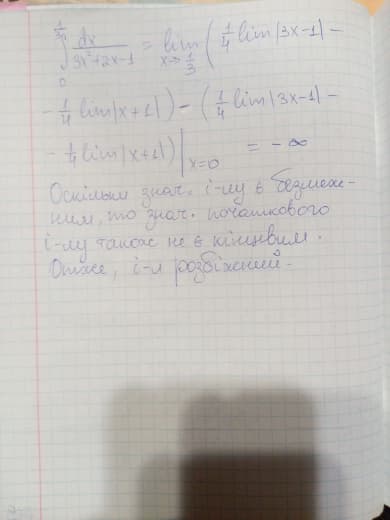 1/3
∫ dx/(3x²+2x-1) = lim x→1/3 ( 1/4 lim |3x-1| -
0
- 1/4 lim |x+1| ) - ( 1/4 lim |3x-1| -
- 1/4 lim |x+1| ) | x=0 = - ∞
Оскільки знач. і-лу є безмеж-
ним, то знач. початкового
і-лу також не є кінцевим.
Отже, і-л розбіжний.